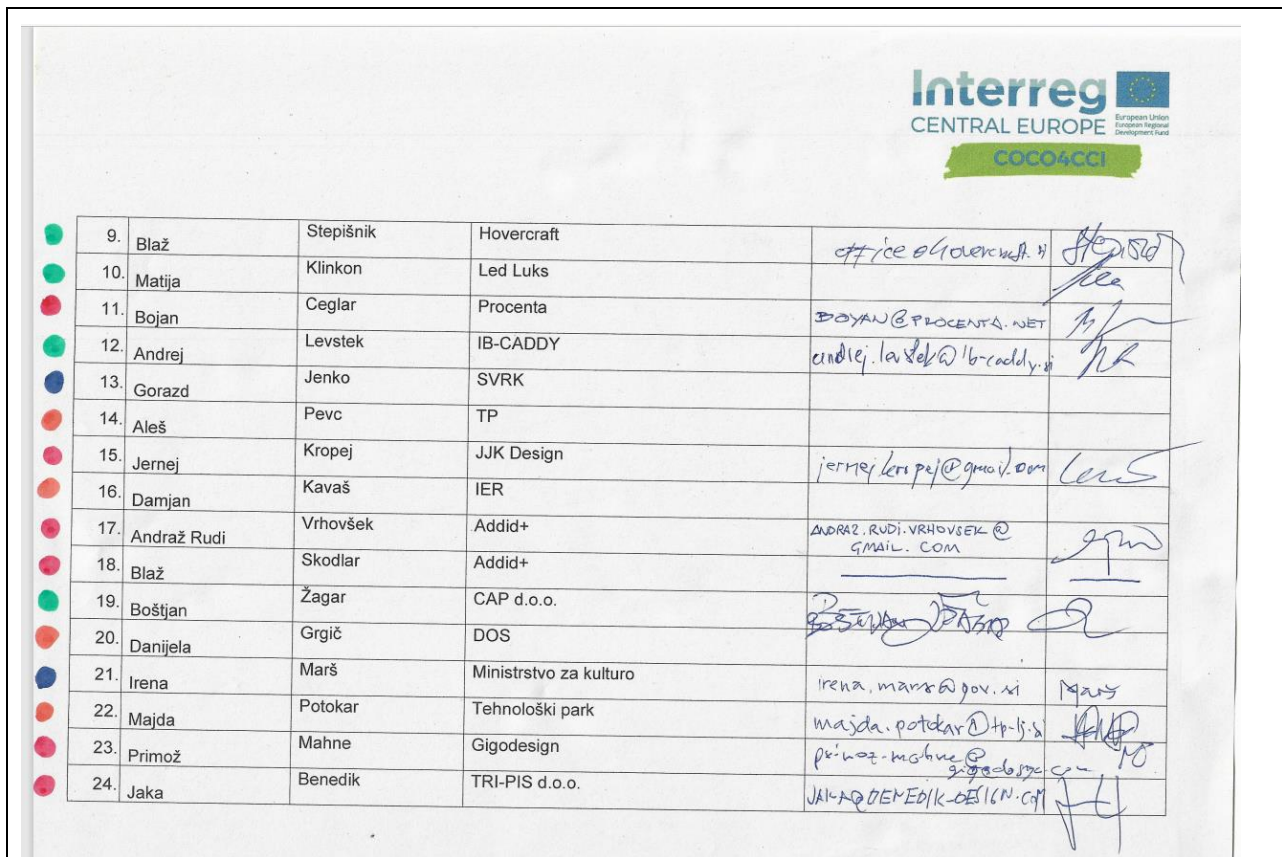 Interreg
CENTRAL EUROPE
European Union
European Regional
Development Fund
COCO4CCI
9. Blaž Stepišnik Hovercraft
10. Matija Klinkon Led Luks
11. Bojan Ceglar Procenta BOYAN@PROCENTA.NET
12. Andrej Levstek IB-CADDY andrej.levstek@ib-caddy.si
13. Gorazd Jenko SVRK
14. Aleš Pevc TP
15. Jernej Kropej JJK Design jernej.kropej@gmail.com
16. Damjan Kavaš IER
17. Andraž Rudi Vrhovšek Addid+ ANDRAZ.RUDI.VRHOVSEK@
GMAIL.COM
18. Blaž Skodlar Addid+
19. Boštjan Žagar CAP d.o.o. BOŠTJAN ŽAGAR
20. Danijela Grgič DOS
21. Irena Marš Ministrstvo za kulturo irena.mars@gov.si Marš
22. Majda Potokar Tehnološki park majda.potokar@tp-lj.si
23. Primož Mahne Gigodesign primoz.mahne@
gigodesign.com
24. Jaka Benedik TRI-PIS d.o.o. JAKA@BENEDIK-DESIGN.COM